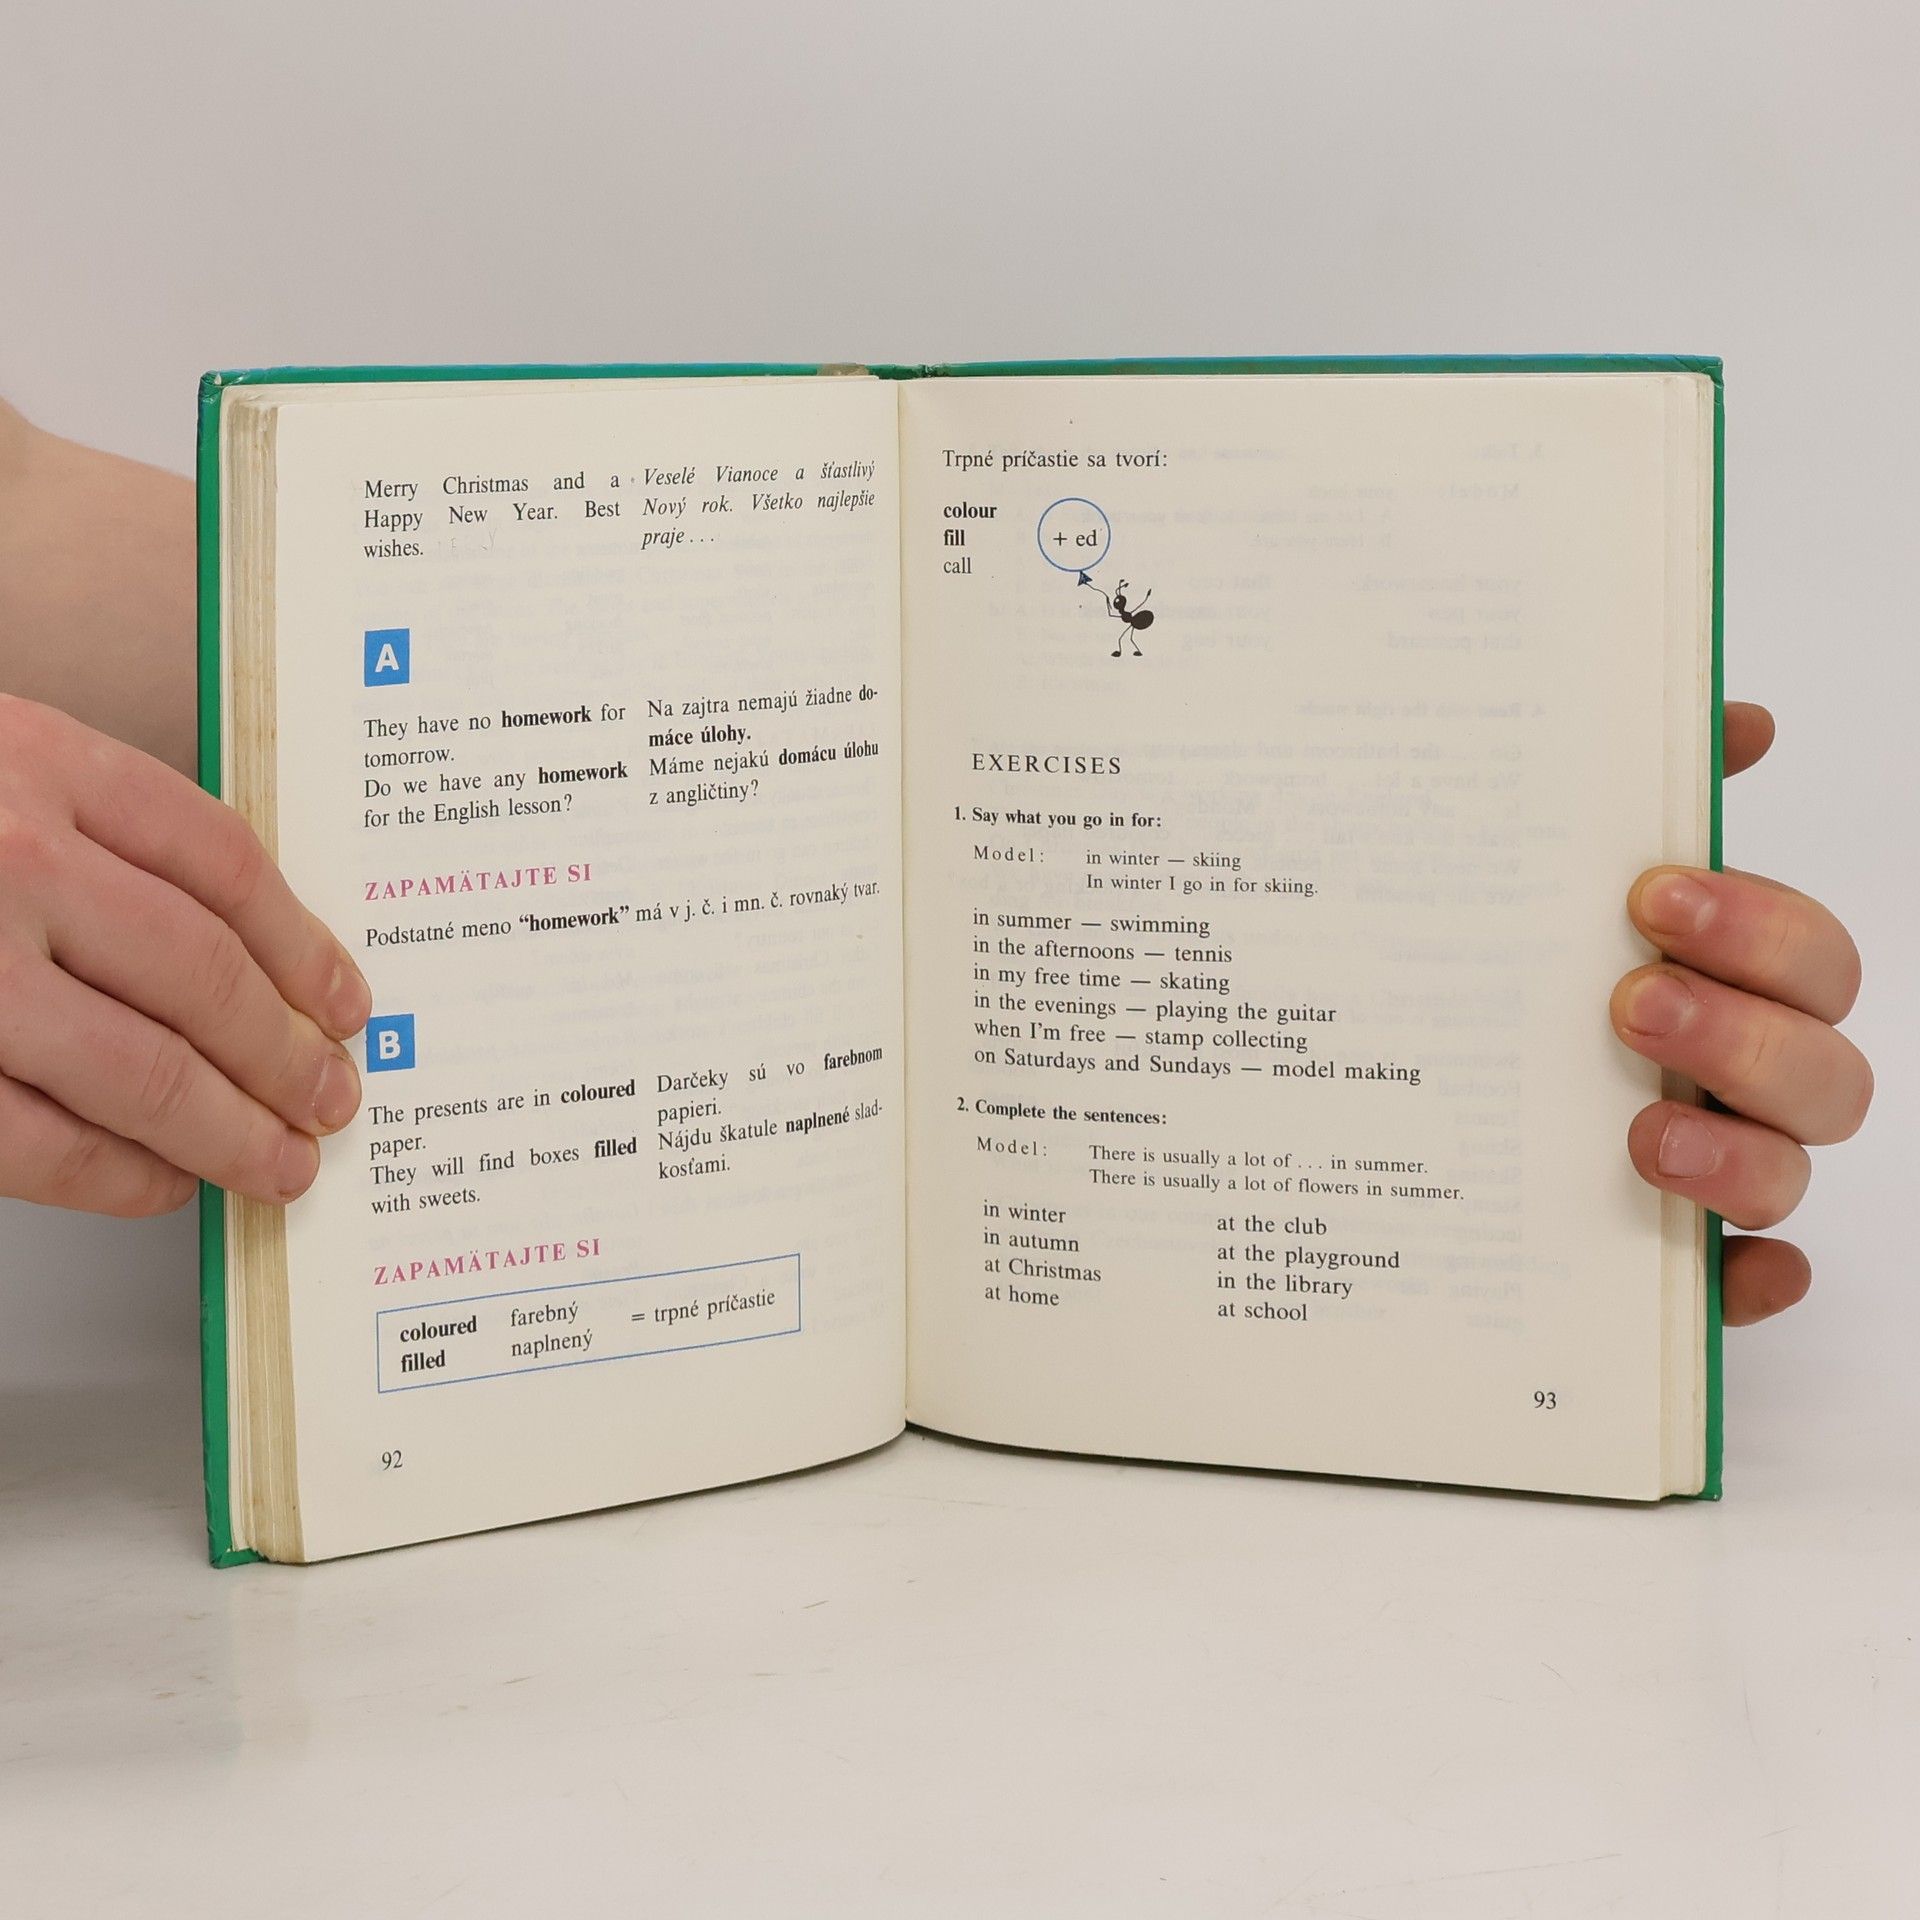 Merry Christmas and a
Happy New Year. Best
wishes.
Veselé Vianoce a šťastlivý
Nový rok. Všetko najlepšie
praje . . .
A
They have no homework for
tomorrow.
Do we have any homework
for the English lesson?
Na zajtra nemajú žiadne do-
máce úlohy.
Máme nejakú domácu úlohu
z angličtiny?
ZAPAMÄTAJTE SI
Podstatné meno “homework” má v j. č. i mn. č. rovnaký tvar.
B
The presents are in coloured
paper.
They will find boxes filled
with sweets.
Darčeky sú vo farebnom
papieri.
Nájdu škatule naplnené slad-
kosťami.
ZAPAMÄTAJTE SI
coloured farebný = trpné príčastie
filled naplnený
92
Trpné príčastie sa tvorí:
colour
fill + ed
call
EXERCISES
1. Say what you go in for:
Model: in winter — skiing
In winter I go in for skiing.
in summer — swimming
in the afternoons — tennis
in my free time — skating
in the evenings — playing the guitar
when I'm free — stamp collecting
on Saturdays and Sundays — model making
2. Complete the sentences:
Model: There is usually a lot of . . . in summer.
There is usually a lot of flowers in summer.
in winter
in autumn
at Christmas
at home
at the club
at the playground
in the library
at school
93